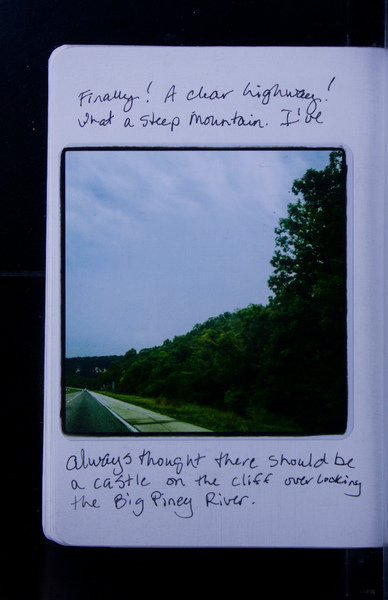 Finally! A clear highway!
What a steep mountain. I've
always thought there should be
a castle on the cliff overlooking
the Big Piney River.